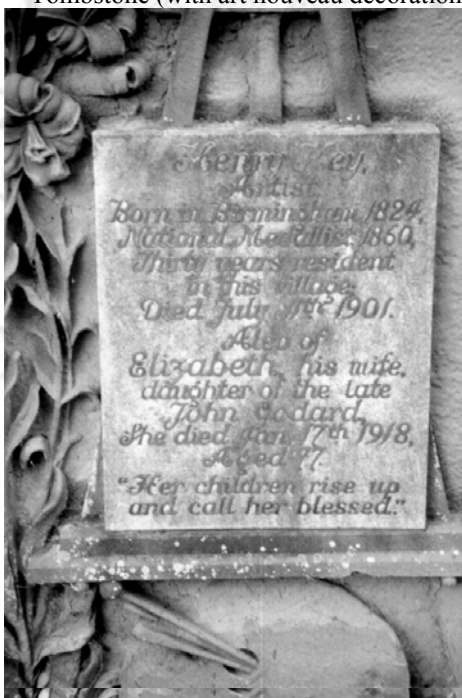 Tombstone (with art nouveau decoration
Henry Key,
Artist
Born in Birmingham 1824,
National Medallist 1860,
Thirty years resident
in this village,
Died July 1901.
Also of
Elizabeth, his wife,
daughter of the late
John Godard,
She died Jan. 17th 1918,
Aged 77.
"Her children rise up
and call her blessed."